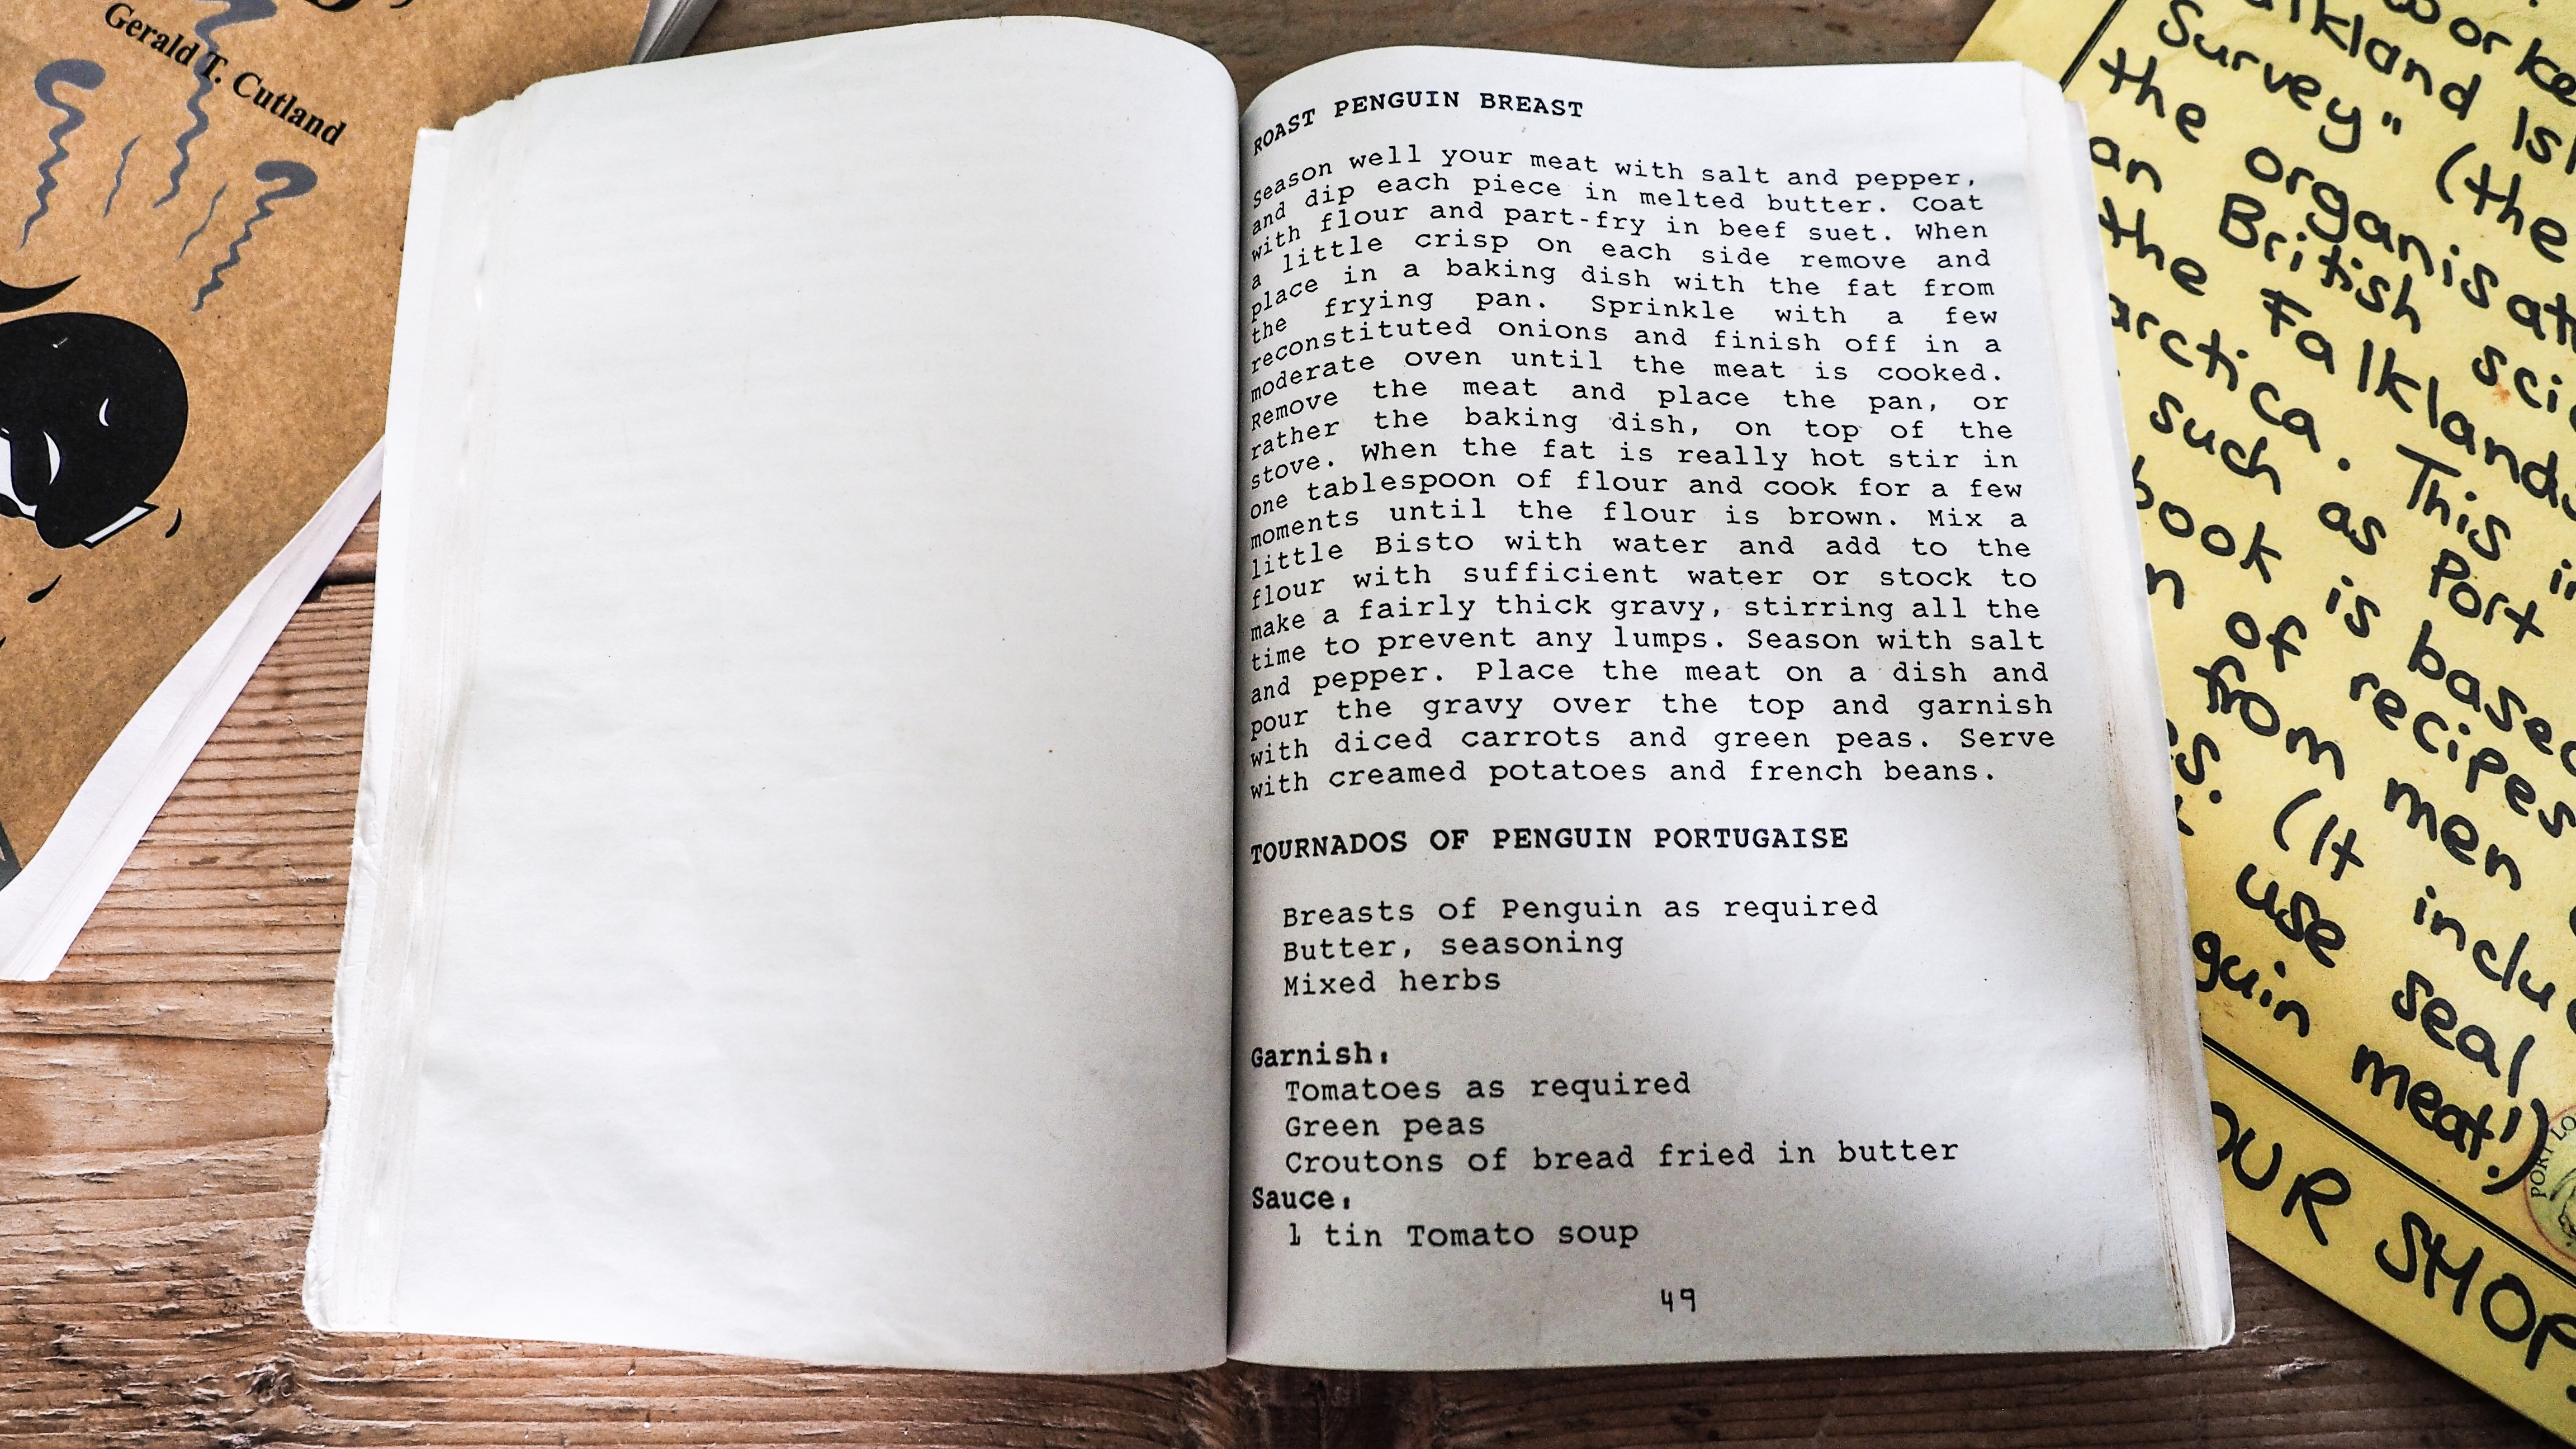 Gerald T. Cutland
ROAST PENGUIN BREAST
Season well your meat with salt and pepper,
and dip each piece in melted butter. Coat
with flour and part-fry in beef suet. When
a little crisp on each side remove and
place in a baking dish with the fat from
the frying pan. Sprinkle with a few
reconstituted onions and finish off in a
moderate oven until the meat is cooked.
Remove the meat and place the pan, or
rather the baking dish, on top of the
stove. When the fat is really hot stir in
one tablespoon of flour and cook for a few
moments until the flour is brown. Mix a
little Bisto with water and add to the
flour with sufficient water or stock to
make a fairly thick gravy, stirring all the
time to prevent any lumps. Season with salt
and pepper. Place the meat on a dish and
pour the gravy over the top and garnish
with diced carrots and green peas. Serve
with creamed potatoes and french beans.
TOURNADOS OF PENGUIN PORTUGAISE
Breasts of Penguin as required
Butter, seasoning
Mixed herbs
Garnish:
Tomatoes as required
Green peas
Croutons of bread fried in butter
Sauce:
1 tin Tomato soup
49
Survey" (the
the
an British
the Falklands
. This
such as Port
book is based
of recipes
from men
(It
use seal
meat!)
SHOP
PORT